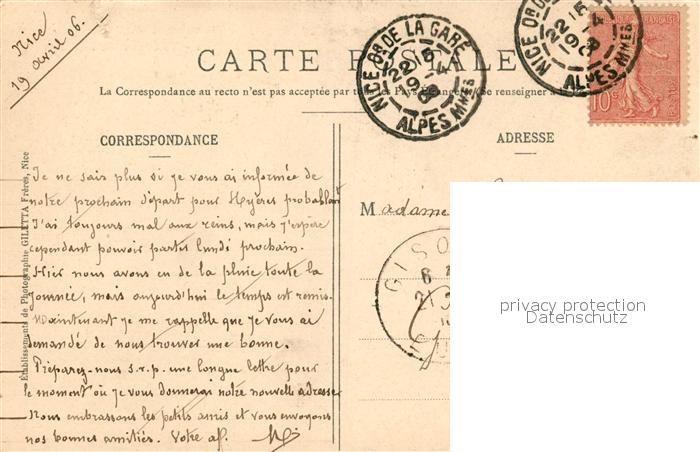 Nice
19 avril 06.
CARTE POSTALE
La Correspondance au recto n'est pas acceptée par tous les Pays Étrangers. (Se renseigner à la
NICE Qr DE LA GARE
22 15
-4
06
ALPES MMES
NICE Qr D
22 15
-4
06
ALPES MMES
10c
CORRESPONDANCE
ADRESSE
Établissements de Photographie GILETTA Frères, Nice
Je ne sais plus si je vous ai informée de
notre prochain départ pour Hyères probablemt
J'ai toujours mal aux reins, mais j'espère
cependant pouvoir partir lundi prochain.
Hier nous avons eu de la pluie toute la
journée, mais aujourd'hui le temps est remis.
Maintenant je me rappelle que je vous ai
demandé de nous trouver une bonne.
Préparez-nous s.v.p. une longue lettre pour
le moment où je vous donnerai notre nouvelle adresse
Nous embrassons les petits amis et vous envoyons
nos bonnes amitiés. Votre aff.
Madame
GISO
privacy protection
Datenschutz